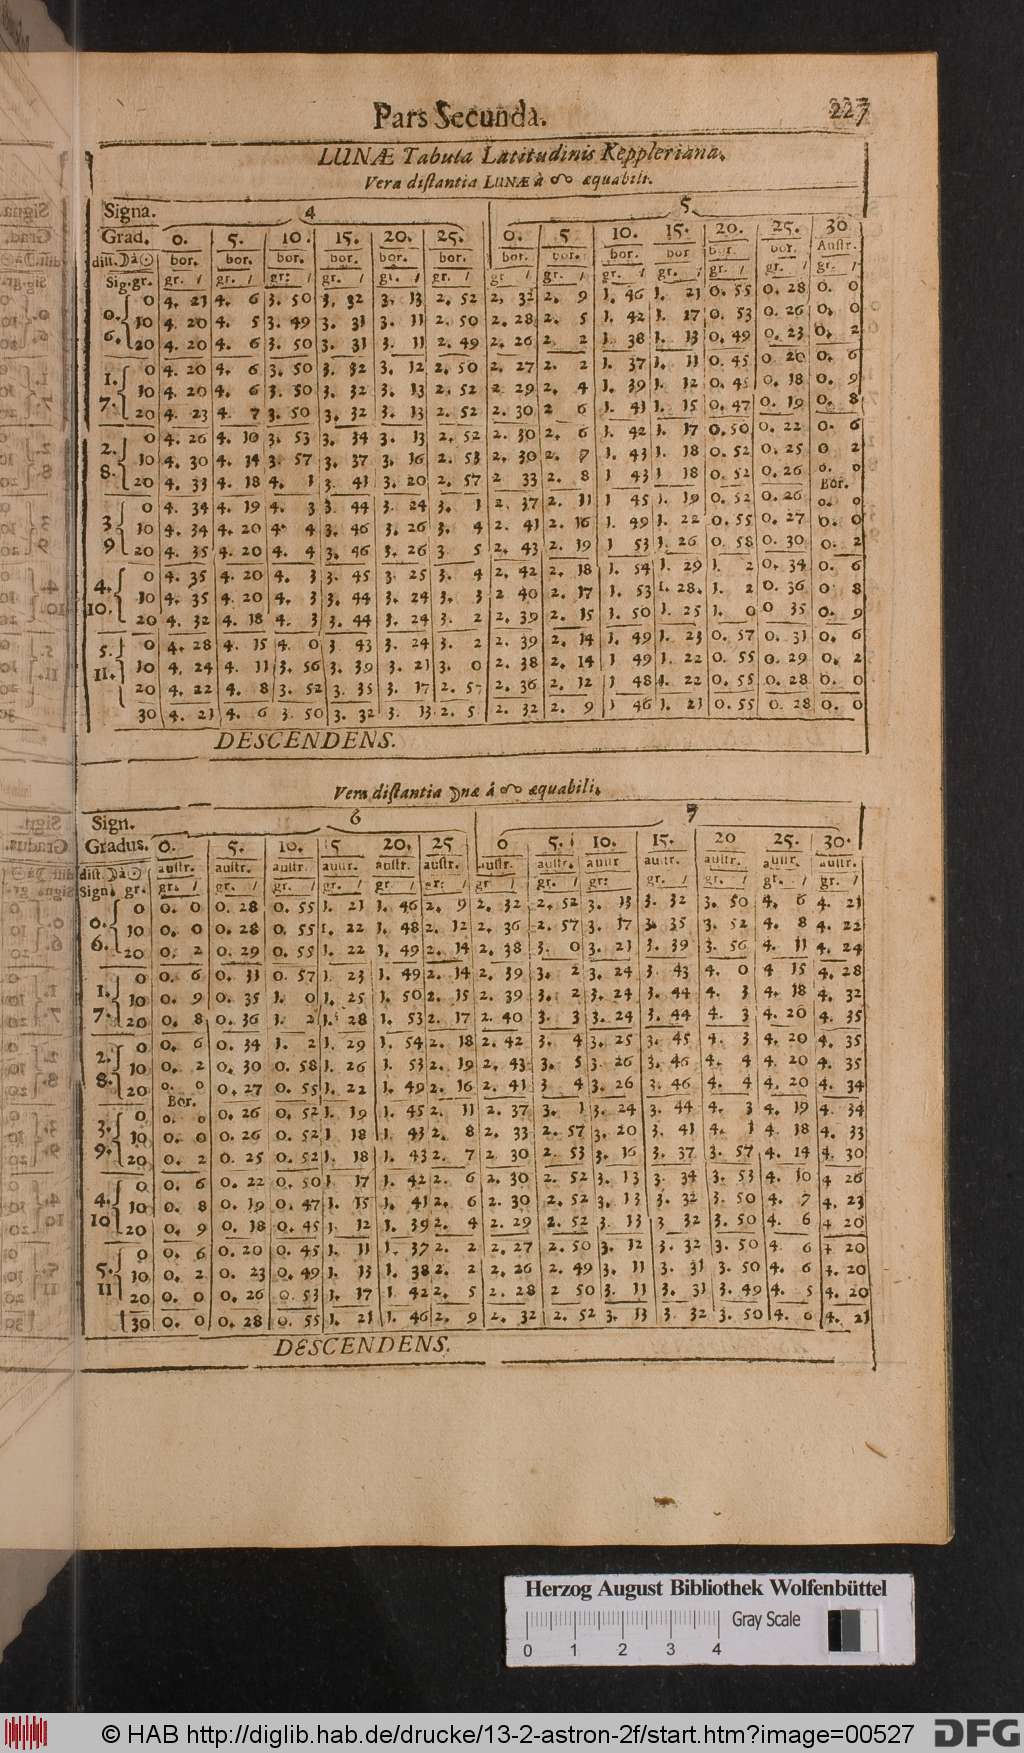 Pars Secunda. 227
LUNÆ Tabula Latitudinis Keppleriana.
Vera distantia LUNÆ à ☊ æquabili.
Signa. 4 5
Grad. 0. 5. 10. 15. 20. 25. 0. 5 10. 15. 20. 25. 30
dist. ☽ à ☉ bor. bor. bor. bor. bor. bor. bor. bor. bor. bor bor. bor. Austr.
Sig. gr. gr. / gr. / gr: / gr. / gr. / gr. / gr / gr. / gr. / gr. / gr. / gr. / gr. /
0 4. 21 4. 6 3. 50 3. 32 3. 13 2. 52 2. 32 2. 9 1. 46 1. 21 0. 55 0. 28 0. 0
0. 6. 10 4. 20 4. 5 3. 49 3. 31 3. 11 2. 50 2. 28 2. 5 1. 42 1. 17 0. 53 0. 26 0. 0
20 4. 20 4. 6 3. 50 3. 31 3. 11 2. 49 2. 26 2. 2 1. 38 1. 13 0. 49 0. 23 0. 2
0 4. 20 4. 6 3. 50 3. 32 3. 12 2. 50 2. 27 2. 2 1. 37 1. 11 0. 45 0 20 0. 6
1. 7. 10 4. 20 4. 6 3. 50 3. 32 3. 13 2. 52 2 29 2. 4 1. 39 1. 12 0. 45 0. 18 0. 9
20 4. 23 4. 7 3. 50 3. 32 3. 13 2. 52 2. 30 2 6 1. 41 1. 15 0. 47 0. 19 0. 8
0 4. 26 4. 10 3. 53 3. 34 3. 13 2. 52 2. 30 2. 6 1. 42 1. 17 0. 50 0. 22 0. 6
2. 8. 10 4. 30 4. 14 3. 57 3. 37 3. 16 2. 53 2. 30 2. 7 1. 43 1. 18 0. 52 0. 25 0 2
20 4. 33 4. 18 4. 1 3. 41 3. 20 2. 57 2 33 2. 8 1 43 1 18 0. 52 0. 26 0. 0
Bor.
0 4. 34 4. 19 4. 3 3. 44 3. 24 3. 1 2. 37 2. 11 1 45 1. 19 0. 52 0. 26 0. 0
3 9 10 4. 34 4. 20 4. 4 3. 46 3. 26 3. 4 2. 41 2. 16 1. 49 1. 22 0. 55 0. 27 0. 0
20 4. 35 4. 20 4. 4 3. 46 3. 26 3 5 2. 43 2. 19 1 53 1. 26 0. 58 0. 30 0. 2
0 4. 35 4. 20 4. 3 3. 45 3 25 3. 4 2. 42 2. 18 1. 54 1. 29 1. 2 0. 34 0. 6
4. 10. 10 4. 35 4. 20 4. 3 3. 44 3. 24 3. 3 2 40 2. 17 1. 53 1. 28. 1. 2 0. 36 0 8
20 4. 32 4. 18 4. 3 3. 44 3. 24 3. 2 2. 39 2. 15 1. 50 1. 25 1. 0 0 35 0. 9
5. 0 4. 28 4. 15 4. 0 3 43 3. 24 3. 2 2. 39 2. 14 1. 49 1. 23 0. 57 0. 31 0. 6
11. 10 4. 24 4. 11 3. 56 3. 39 3. 21 3. 0 2. 38 2. 14 1 49 1. 22 0. 55 0. 29 0. 2
20 4. 22 4. 8 3. 52 3. 35 3. 17 2. 57 2. 36 2. 12 1 48 1. 22 0. 55 0. 28 0. 0
30 4. 21 4. 6 3. 50 3. 32 3. 13 2. 5 2. 32 2. 9 1 46 1. 21 0. 55 0. 28 0. 0
DESCENDENS.
Vera distantia ☽næ à ☊ æquabili.
Sign. 6 7
Gradus. 0. 5. 10. 5 20. 25 0 5. 10. 15. 20 25. 30.
dist. ☽ à ☉ austr. austr. austr. austr. austr. austr. austr. austr. austr austr. austr. austr. austr.
Sign. gr. gr. / gr. / gr. / gr. / gr / gr: / gr / gr. / gr: gr. / gr. / gr. / gr. /
0 0. 0 0. 28 0. 55 1. 21 1. 46 2. 9 2. 32 2. 52 3. 13 3. 32 3. 50 4. 6 4. 21
0. 6. 10 0. 0 0. 28 0. 55 1. 22 1. 48 2. 12 2. 36 2. 57 3. 17 3. 35 3. 52 4. 8 4. 22
20 0. 2 0. 29 0. 55 1. 22 1. 49 2. 14 2. 38 3. 0 3. 21 3. 39 3. 56 4. 11 4. 24
0 0. 6 0. 31 0. 57 1. 23 1. 49 2. 14 2. 39 3. 2 3. 24 3. 43 4. 0 4 15 4. 28
1. 7. 10 0. 9 0. 35 1. 0 1. 25 1. 50 2. 15 2. 39 3. 2 3. 24 3. 44 4. 3 4. 18 4. 32
20 0. 8 0. 36 1. 2 1. 28 1. 53 2. 17 2. 40 3. 3 3. 24 3. 44 4. 3 4. 20 4. 35
0 0. 6 0. 34 1. 2 1. 29 1. 54 2. 18 2. 42 3. 4 3. 25 3. 45 4. 3 4. 20 4. 35
2. 8. 10 0. 2 0. 30 0. 58 1. 26 1. 53 2. 19 2. 43 3. 5 3. 26 3. 46 4. 4 4. 20 4. 35
20 0. 0 0. 27 0. 55 1. 22 1. 49 2. 16 2. 41 3 4 3. 26 3. 46 4. 4 4. 20 4. 34
Bor.
0 0. 0 0. 26 0. 52 1. 19 1. 45 2. 11 2. 37 3. 1 3. 24 3. 44 4. 3 4. 19 4. 34
3. 9. 10 0. 0 0. 26 0. 52 1 18 1. 43 2. 8 2. 33 2. 57 3. 20 3. 41 4. 1 4. 18 4. 33
20 0. 2 0. 25 0. 52 1. 18 1. 43 2. 7 2 30 2. 53 3. 16 3. 37 3. 57 4. 14 4. 30
0 0. 6 0. 22 0. 50 1. 17 1. 42 2. 6 2. 30 2. 52 3. 13 3. 34 3. 53 4. 10 4 26
4. 10 10 0. 8 0. 19 0. 47 1. 15 1. 41 2. 6 2. 30 2. 52 3. 13 3. 32 3. 50 4. 7 4. 23
20 0. 9 0. 18 0. 45 1. 12 1. 39 2. 4 2. 29 2. 52 3. 13 3 32 3. 50 4. 6 4 20
0 0. 6 0. 20 0. 45 1. 11 1. 37 2. 2 2. 27 2. 50 3. 12 3. 32 3. 50 4. 6 4 20
5. 11 10 0. 2 0. 23 0. 49 1. 13 1. 38 2. 2 2. 26 2. 49 3. 11 3. 31 3. 50 4. 6 4. 20
20 0. 0 0. 26 0. 53 1. 17 1. 42 2. 5 2. 28 2 50 3. 11 3. 31 3. 49 4. 5 4. 20
30 0. 0 0. 28 0. 55 1. 21 1. 46 2. 9 2. 32 2. 52 3. 13 3. 32 3. 50 4. 6 4. 21
DESCENDENS.
Herzog August Bibliothek Wolfenbüttel
Gray Scale
0 1 2 3 4
© HAB http://diglib.hab.de/drucke/13-2-astron-2f/start.htm?image=00527 DFG